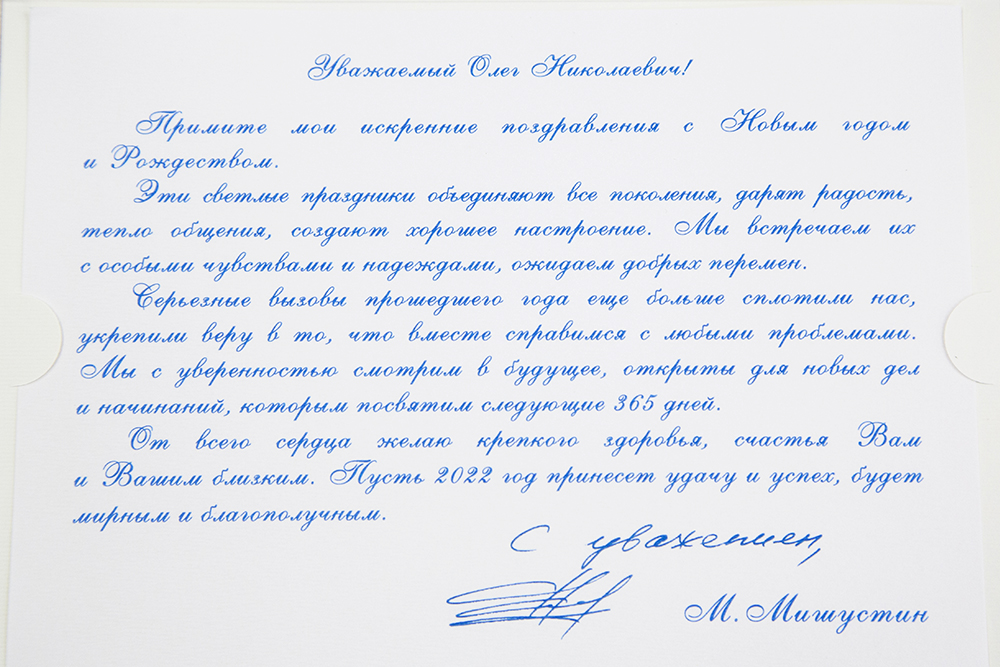 Уважаемый Олег Николаевич!
Примите мои искренние поздравления с Новым годом
и Рождеством.
Эти светлые праздники объединяют все поколения, дарят радость,
тепло общения, создают хорошее настроение. Мы встречаем их
с особыми чувствами и надеждами, ожидаем добрых перемен.
Серьезные вызовы прошедшего года еще больше сплотили нас,
укрепили веру в то, что вместе справимся с любыми проблемами.
Мы с уверенностью смотрим в будущее, открыты для новых дел
и начинаний, которым посвятим следующие 365 дней.
От всего сердца желаю крепкого здоровья, счастья Вам
и Вашим близким. Пусть 2022 год принесет удачу и успех, будет
мирным и благополучным.
С уважением,
М. Мишустин